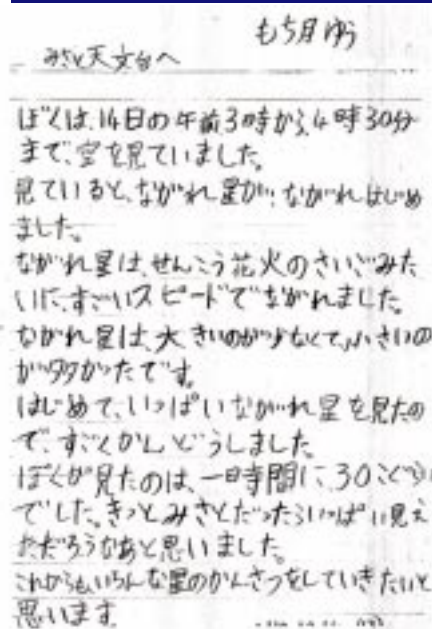 もち月ゆう
みさと天文台へ
ぼくは、14日の午前3時から、4時30分
まで、空を見ていました。
見ていると、ながれ星が、ながれはじめ
ました。
ながれ星は、せんこう花火のさいごみた
いに、すごいスピードでながれました。
ながれ星は、大きいのが少なくて、小さいの
が多かったです。
はじめて、いっぱいながれ星を見たの
で、すごくかんどうしました。
ぼくが見たのは、一時間に、30こぐらい
でした。きっとみさとだったらいっぱい見え
ただろうなあと思いました。
これからもいろんな星のかんさつをしていきたいと
思います。